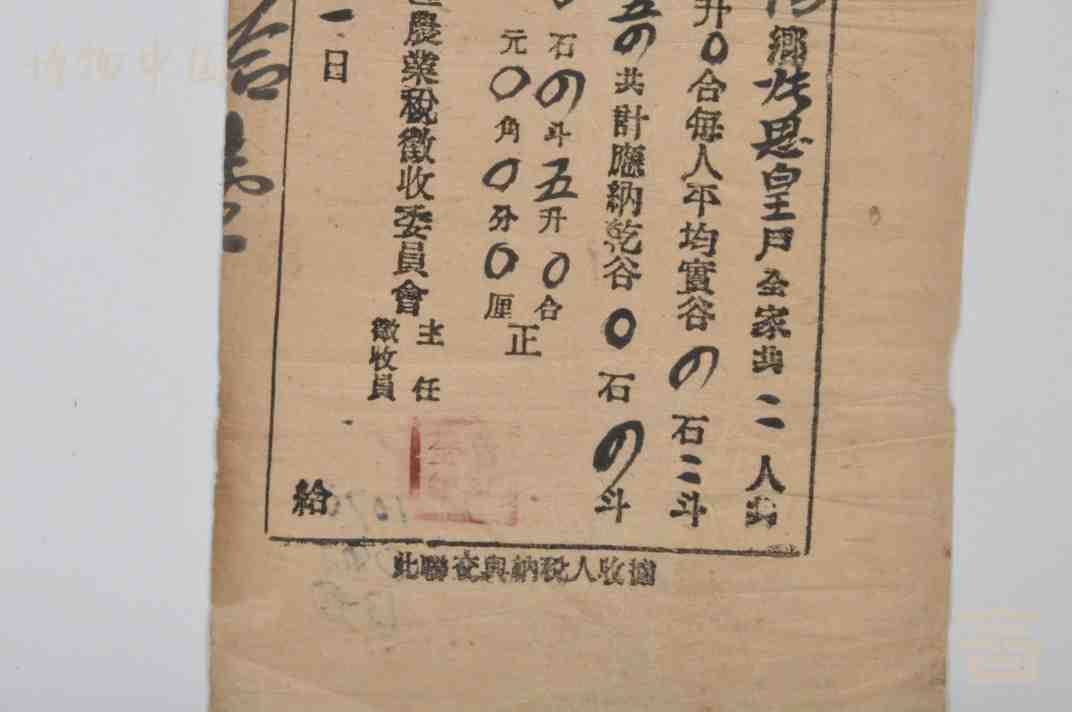 鄉 思皇戶全家共二人共
升〇合每人平均實谷の石二斗
五の共計應納乾谷〇石の斗
石の斗五升〇合
元〇角〇分〇厘
正
農業稅徵收委員會
主任
徵收員
一日
給
據收人稅納與交聯此
博物中国